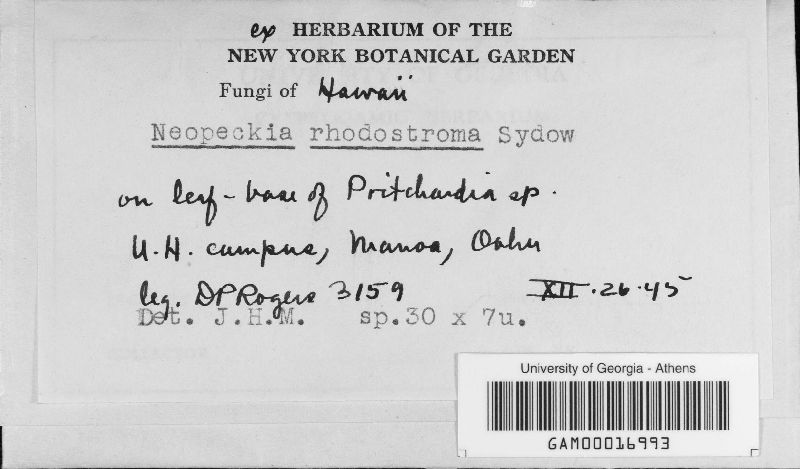 ex HERBARIUM OF THE
NEW YORK BOTANICAL GARDEN
Fungi of Hawaii
Neopeckia rhodostroma Sydow
on leaf-base of Pritchardia sp.
U.H. campus, Manoa, Oahu
leg. DPRogers 3159 XII.26.45
Det. J.H.M. sp.30 x 7u.
University of Georgia - Athens
GAM00016993